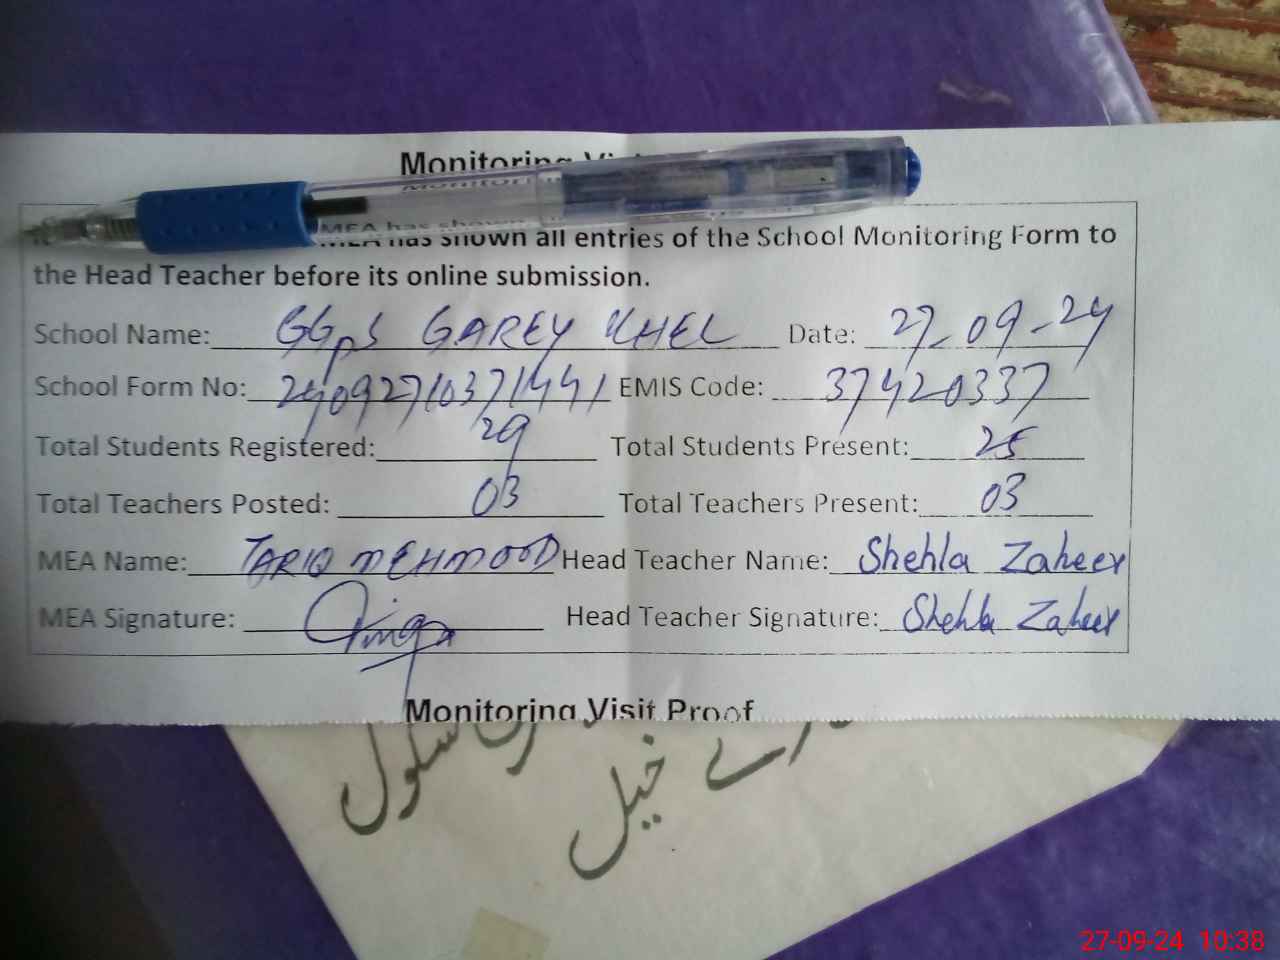 Monitoring
MEA has shown all entries of the School Monitoring Form to
the Head Teacher before its online submission.
School Name: GGpS GAREY KHEL Date: 27-09-24
School Form No: 24092710371441 EMIS Code: 37420337
Total Students Registered: 29 Total Students Present: 25
Total Teachers Posted: 03 Total Teachers Present: 03
MEA Name: TARIQ MEHMOOD Head Teacher Name: Shehla Zaheer
MEA Signature: Head Teacher Signature: Shehla Zaheer
Monitoring Visit Proof
سکول
خیل
27-09-24 10:38